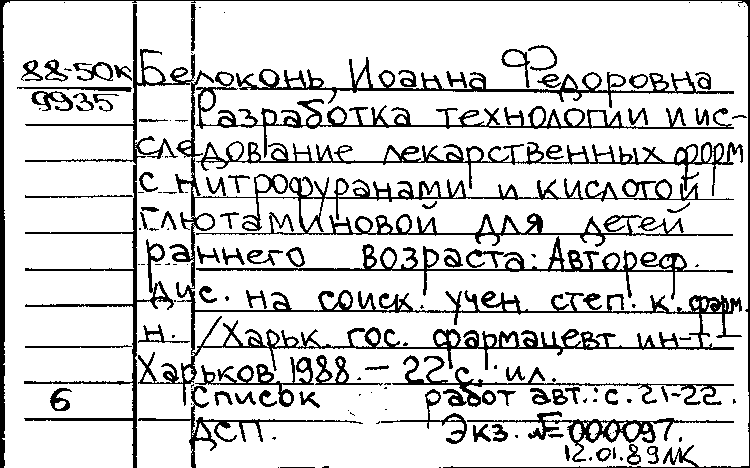 88-50к Белоконь, Иоанна Федоровна
9935 Разработка технологии и ис-
следование лекарственных форм
с нитрофуранами и кислотой
глютаминовой для детей
раннего возраста: Автореф.
дис. на соиск. учен. степ. к. фарм.
н. / Харьк. гос. фармацевт. ин-т. -
Харьков, 1988. - 22 с. : ил.
6 Список работ авт.: с. 21-22.
ДСП. Экз. № 000097.
12.01.89